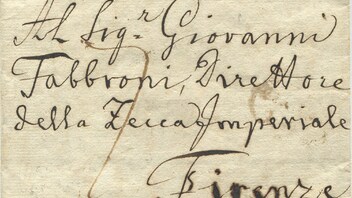 Al Sig.r Giovanni
Fabbroni, Direttore
della Zecca Imperiale
Firenze